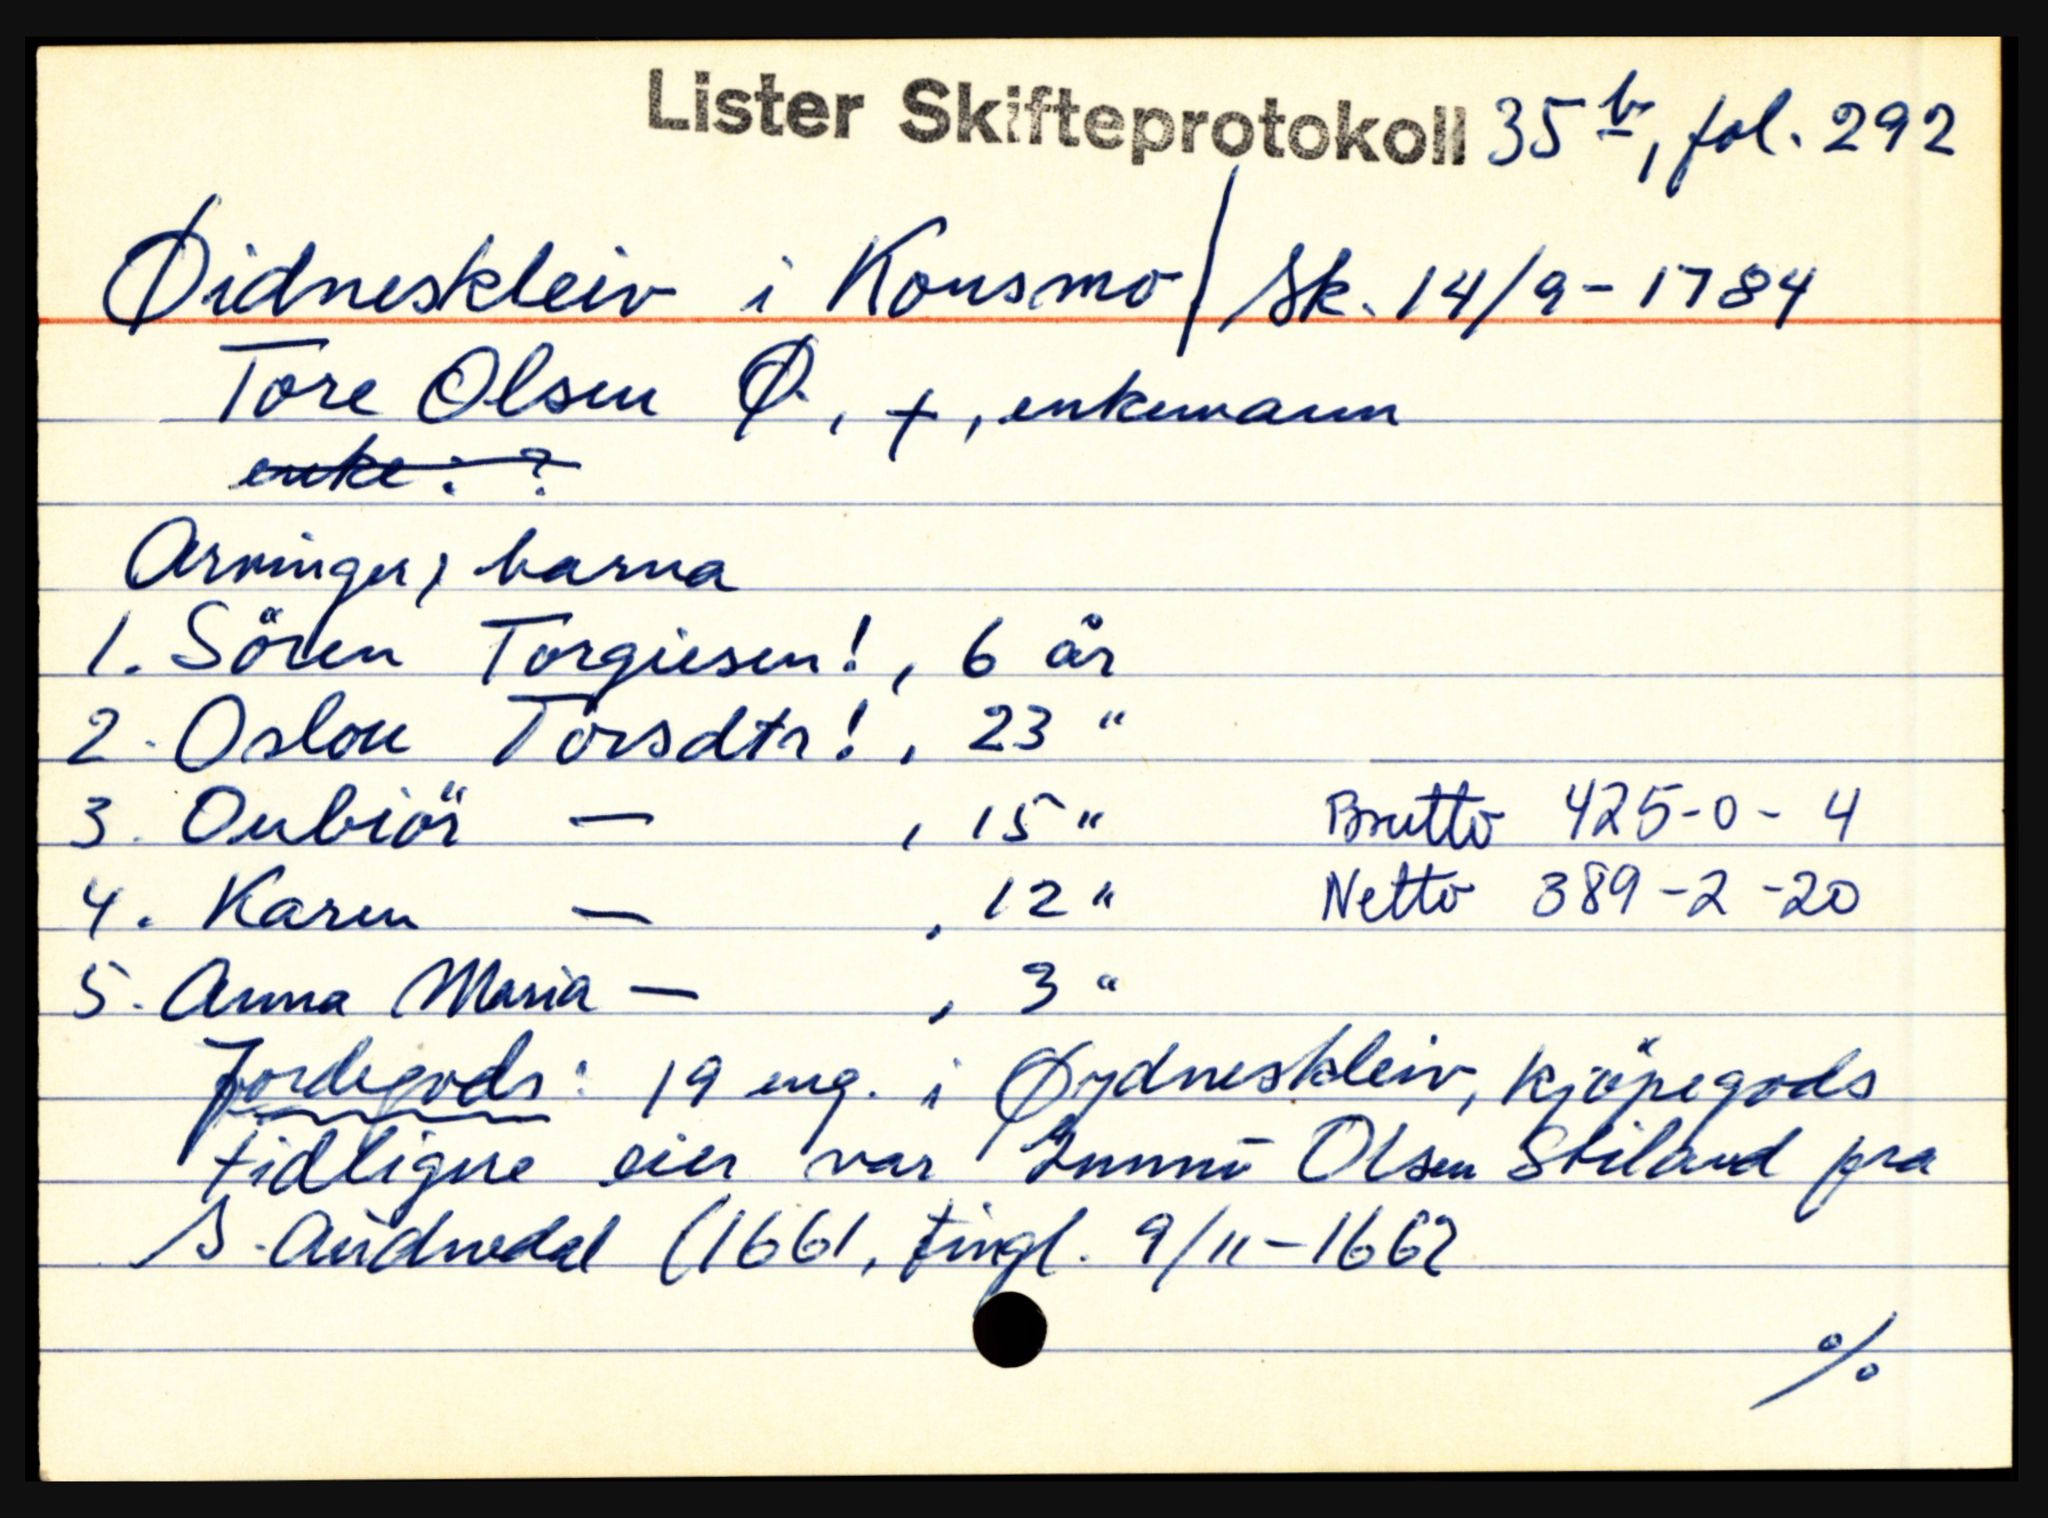 Lister Skifteprotokoll 35 b, fol. 292
Øidneskleiv i Konsmo / Sk. 14/9-1784
Tore Olsen Ø., +, enkemann
enke: ?
Arvinger, barna
1. Sören Torgiesen!, 6 år
2. Oslou Torsdtr!, 23 "
3. Oubiör — , 15 " Brutto 425-0-4
4. Karen — , 12 " Netto 389-2-20
5. Anna Maria — , 3 "
Jordegods: 19 eng. i Øydneskleiv, kjöpegods
tidligere eier var Olsen Stiland fra
S. Audnedal (1661, tingl. 9/11-1662
%